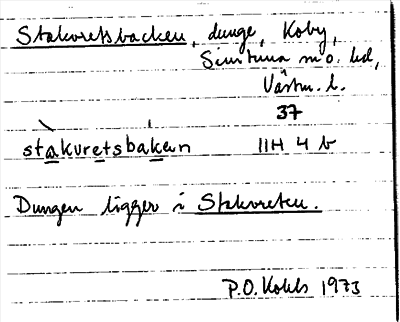 Stakvretsbacken, dunge, Koby,
Simtuna sn o. hd,
Västm. l.
37
stakvretsbakan 11H 4 b
Dungen ligger i Stakvreten.
P.O. Kohls 1973